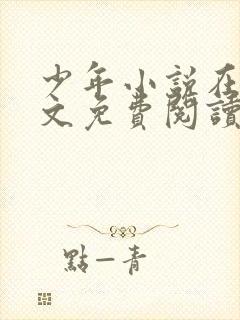 少年小说在
文免費閱讀
點一青